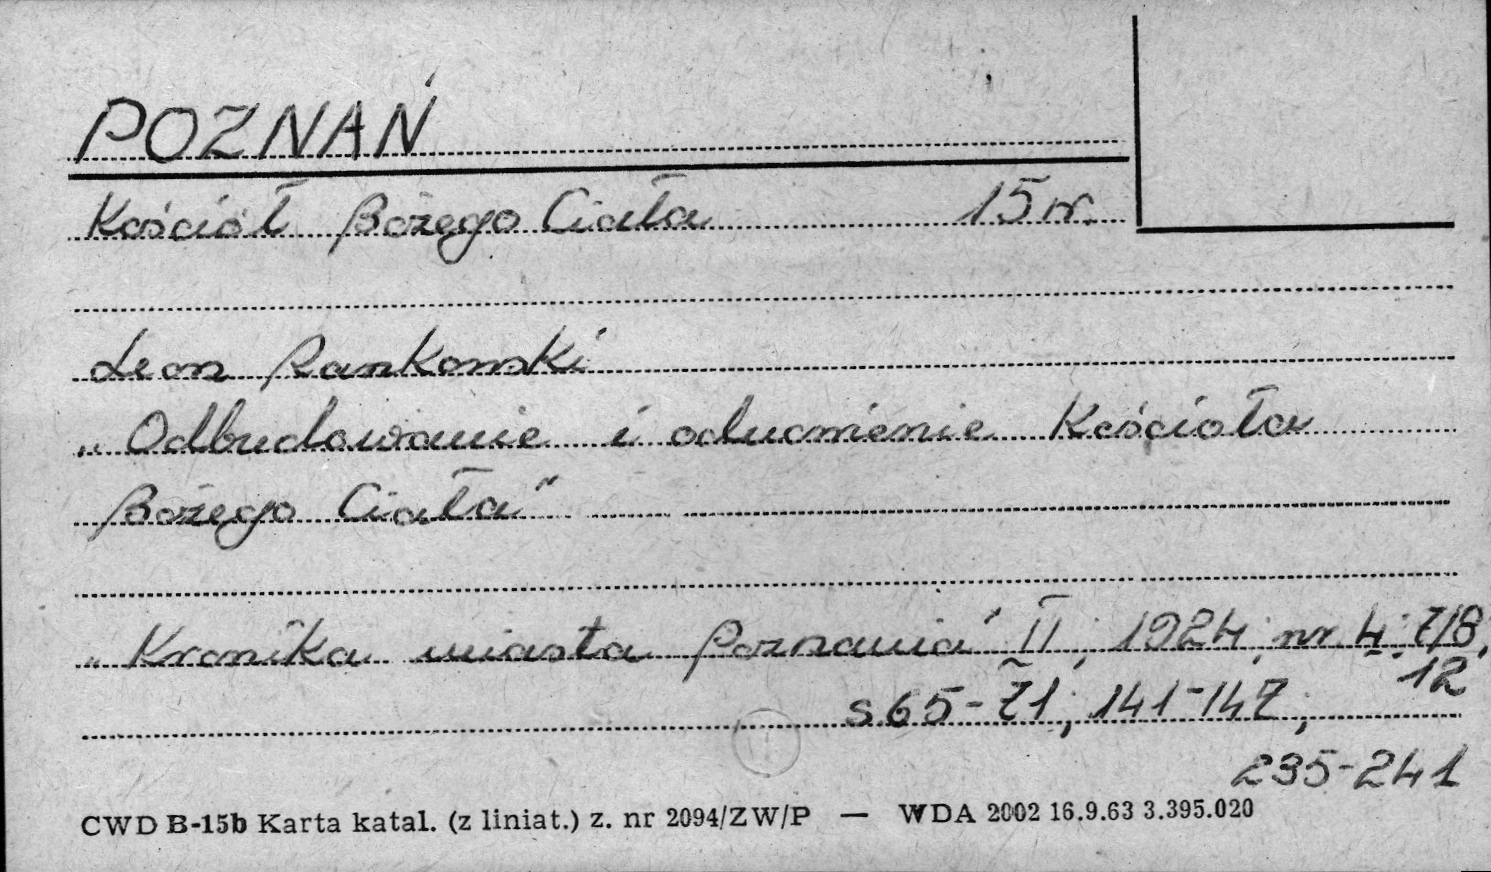 POZNAŃ
Kościół Bożego Ciała 15 w.
Leon Rankowski
„Odbudowanie i odnowienie Kościoła
Bożego Ciała"
„Kronika miasta Poznania" II, 1924, nr 4, 7/8,
12
s 65-71, 141-147,
235-241
CWD B-15b Karta katal. (z liniat.) z. nr 2094/ZW/P — WDA 2002 16.9.63 3.395.020